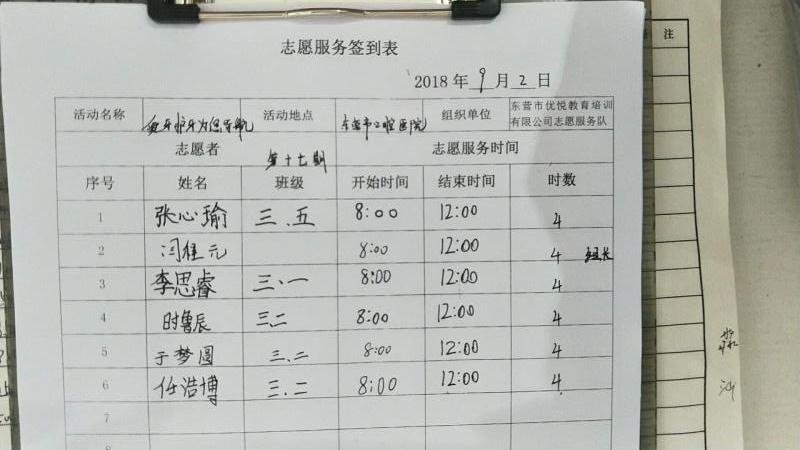 志愿服务签到表
2018 年 9 月 2 日
活动名称 爱牙护牙为您导航 活动地点 东营市口腔医院 组织单位 东营市优悦教育培训有限公司志愿服务队
志愿者 第十七期 志愿服务时间
序号 姓名 班级 开始时间 结束时间 时数
1 张心瑜 三.五 8:00 12:00 4
2 闫桂元 8:00 12:00 4 组长
3 李思睿 三.一 8:00 12:00 4
4 时鲁辰 三.二 8:00 12:00 4
5 于梦圆 三.二 8:00 12:00 4
6 任浩博 三.二 8:00 12:00 4
7
注